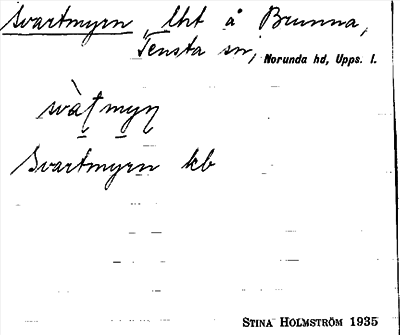 Svartmyrn, lht å Brunna,
Tensta sn, Norunda hd, Upps. l.
Svartmyrn kb
STINA HOLMSTRÖM 1935